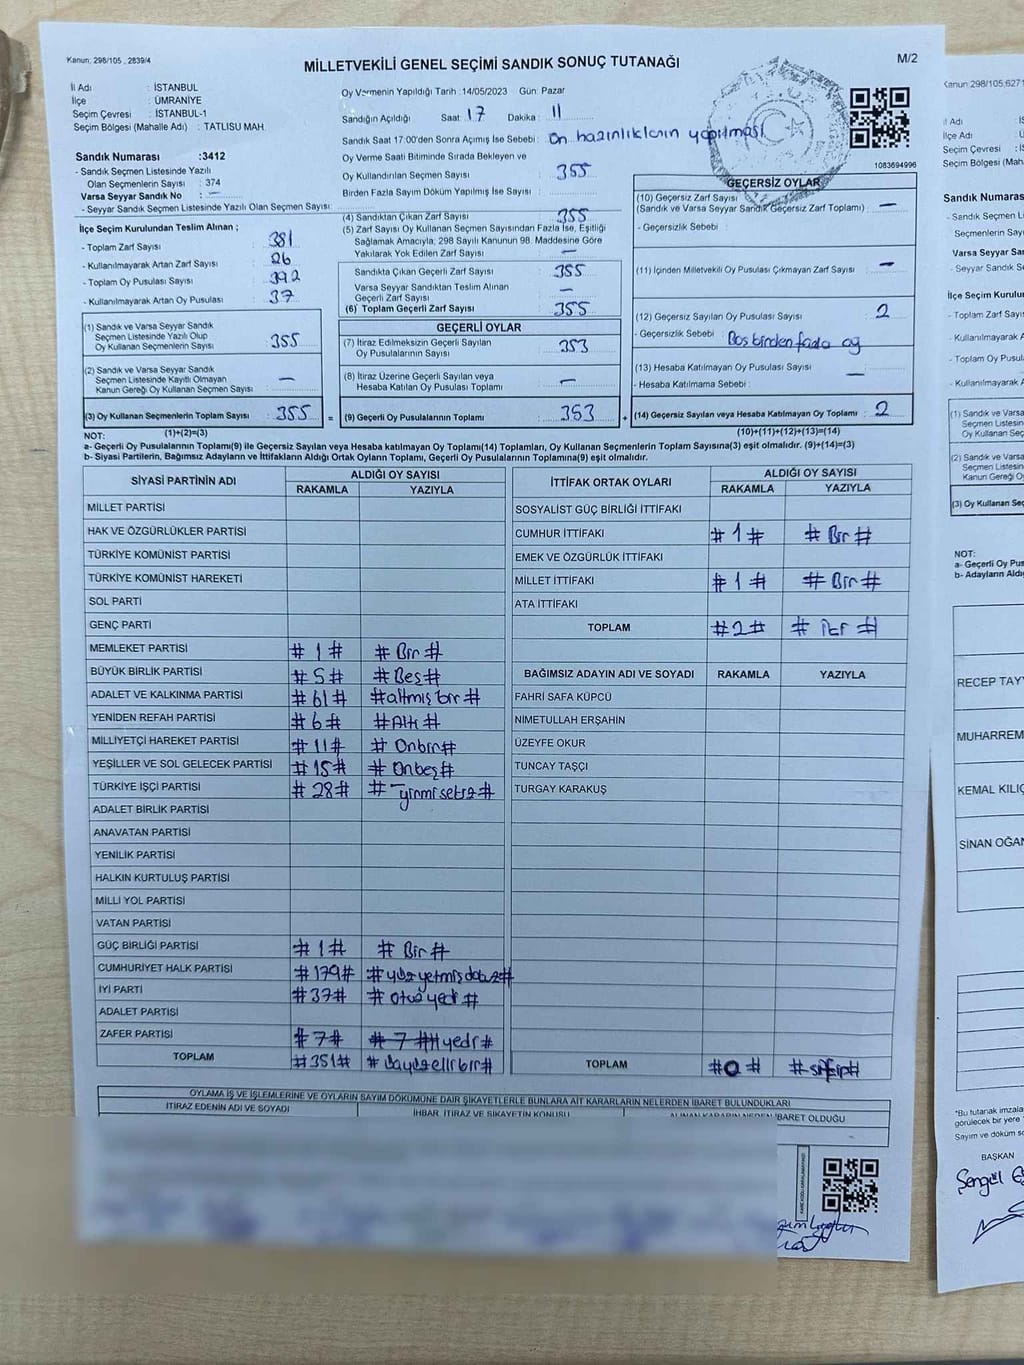 Kanun: 298/105 , 2839/4
MİLLETVEKİLİ GENEL SEÇİMİ SANDIK SONUÇ TUTANAĞI
M/2
İl Adı : İSTANBUL
İlçe : ÜMRANİYE
Seçim Çevresi : İSTANBUL-1
Seçim Bölgesi (Mahalle Adı) : TATLISU MAH.
Sandık Numarası :3412
- Sandık Seçmen Listesinde Yazılı
Olan Seçmenlerin Sayısı : 374
Varsa Seyyar Sandık No : —
- Seyyar Sandık Seçmen Listesinde Yazılı Olan Seçmen Sayısı:
Oy Vermenin Yapıldığı Tarih :14/05/2023 Gün: Pazar
Sandığın Açıldığı Saat: 17 Dakika : 11
Sandık Saat 17:00'den Sonra Açımış İse Sebebi: Ön hazırlıkların yapılması
Oy Verme Saati Bitiminde Sırada Bekleyen ve
Oy Kullandırılan Seçmen Sayısı : 355
Birden Fazla Sayım Döküm Yapılmış İse Sayısı :
1083694996
İlçe Seçim Kurulundan Teslim Alınan ;
- Toplam Zarf Sayısı : 381
- Kullanılmayarak Artan Zarf Sayısı : 26
- Toplam Oy Pusulası Sayısı : 392
- Kullanılmayarak Artan Oy Pusulası : 37
(1) Sandık ve Varsa Seyyar Sandık
Seçmen Listesinde Yazılı Olup
Oy Kullanan Seçmenlerin Sayısı : 355
(2) Sandık ve Varsa Seyyar Sandık
Seçmen Listesinde Kayıtlı Olmayan
Kanun Gereği Oy Kullanan Seçmen Sayısı : —
(3) Oy Kullanan Seçmenlerin Toplam Sayısı : 355 =
(1)+(2)=(3)
(4) Sandıktan Çıkan Zarf Sayısı : 355
(5) Zarf Sayısı Oy Kullanan Seçmen Sayısından Fazla İse, Eşitliği
Sağlamak Amacıyla; 298 Sayılı Kanunun 98. Maddesine Göre
Yakılarak Yok Edilen Zarf Sayısı : —
Sandıkta Çıkan Geçerli Zarf Sayısı : 355
Varsa Seyyar Sandıktan Teslim Alınan
Geçerli Zarf Sayısı : —
(6) Toplam Geçerli Zarf Sayısı : 355
GEÇERLİ OYLAR
(7) İtiraz Edilmeksizin Geçerli Sayılan
Oy Pusulalarının Sayısı : 353
(8) İtiraz Üzerine Geçerli Sayılan veya
Hesaba Katılan Oy Pusulası Toplamı : —
(9) Geçerli Oy Pusulalarının Toplamı : 353 +
GEÇERSİZ OYLAR
(10) Geçersiz Zarf Sayısı : —
(Sandık ve Varsa Seyyar Sandık Geçersiz Zarf Toplamı)
- Geçersizlik Sebebi :
(11) İçinden Milletvekili Oy Pusulası Çıkmayan Zarf Sayısı : —
(12) Geçersiz Sayılan Oy Pusulası Sayısı : 2
- Geçersizlik Sebebi :
(13) Hesaba Katılmayan Oy Pusulası Sayısı : —
- Hesaba Katılmama Sebebi :
(14) Geçersiz Sayılan veya Hesaba Katılmayan Oy Toplamı : 2
(10)+(11)+(12)+(13)=(14)
NOT:
a- Geçerli Oy Pusulalarının Toplamı(9) ile Geçersiz Sayılan veya Hesaba katılmayan Oy Toplamı(14) Toplamları, Oy Kullanan Seçmenlerin Toplam Sayısına(3) eşit olmalıdır. (9)+(14)=(3)
b- Siyasi Partilerin, Bağımsız Adayların ve İttifakların Aldığı Ortak Oyların Toplamı, Geçerli Oy Pusulalarının Toplamına(9) eşit olmalıdır.
SİYASİ PARTİNİN ADI ALDIĞI OY SAYISI
RAKAMLA YAZIYLA
MİLLET PARTİSİ
HAK VE ÖZGÜRLÜKLER PARTİSİ
TÜRKİYE KOMÜNİST PARTİSİ
TÜRKİYE KOMÜNİST HAREKETİ
SOL PARTİ
GENÇ PARTİ
MEMLEKET PARTİSİ # 1 # # Bir #
BÜYÜK BİRLİK PARTİSİ # 5 # # Beş #
ADALET VE KALKINMA PARTİSİ # 61 # # altmış bir #
YENİDEN REFAH PARTİSİ # 6 # # Altı #
MİLLİYETÇİ HAREKET PARTİSİ # 11 # # Onbir #
YEŞİLLER VE SOL GELECEK PARTİSİ # 15 # # Onbeş #
TÜRKİYE İŞÇİ PARTİSİ # 28 # # yirmi sekiz #
ADALET BİRLİK PARTİSİ
ANAVATAN PARTİSİ
YENİLİK PARTİSİ
HALKIN KURTULUŞ PARTİSİ
MİLLİ YOL PARTİSİ
VATAN PARTİSİ
GÜÇ BİRLİĞİ PARTİSİ # 1 # # Bir #
CUMHURİYET HALK PARTİSİ # 179 # # yüz yetmiş dokuz #
İYİ PARTİ # 37 # # otuz yedi #
ADALET PARTİSİ
ZAFER PARTİSİ # 7 # # 7 ## yedi #
TOPLAM # 351 # # üçyüzellibir #
İTTİFAK ORTAK OYLARI ALDIĞI OY SAYISI
RAKAMLA YAZIYLA
SOSYALİST GÜÇ BİRLİĞİ İTTİFAKI
CUMHUR İTTİFAKI # 1 # # Bir #
EMEK VE ÖZGÜRLÜK İTTİFAKI
MİLLET İTTİFAKI # 1 # # Bir #
ATA İTTİFAKI
TOPLAM # 2 # # iki #
BAĞIMSIZ ADAYIN ADI VE SOYADI RAKAMLA YAZIYLA
FAHRİ SAFA KÜPCÜ
NİMETULLAH ERŞAHİN
ÜZEYFE OKUR
TUNCAY TAŞÇI
TURGAY KARAKUŞ
TOPLAM # 0 # # sıfır #
OYLAMA İŞ VE İŞLEMLERİNE VE OYLARIN SAYIM DÖKÜMÜNE DAİR ŞİKAYETLERLE BUNLARA AİT KARARLARIN NELERDEN İBARET BULUNDUKLARI
İTİRAZ EDENİN ADI VE SOYADI İHBAR, İTİRAZ VE ŞİKAYETİN KONUSU ALINAN KARARIN NEDEN İBARET OLDUĞU
Kanun: 298/105,6271
İl Adı
İlçe
Seçim Çevresi
Seçim Bölgesi (M
Sandık Numaras
- Sandık Seçmen
Seçmenlerin Sayı
Varsa Seyyar Sa
- Seyyar Sandık
İlçe Seçim Kurulun
- Toplam Zarf Sayıs
- Kullanılmayarak
- Toplam Oy Pusu
- Kullanılmayarak
(1) Sandık ve Varsa
Seçmen Listesin
Oy Kullanan Seç
(2) Sandık ve Varsa
Seçmen Listesin
Kanun Gereği O
(3) Oy Kullanan Seç
NOT:
a- Geçerli Oy Pus
b- Adayların Aldığ
RECEP TAYY
MUHARREM
KEMAL KILIÇ
SİNAN OĞAN
*Bu tutanak imzala
görülecek bir yere
Sayım ve döküm so
BAŞKAN
Şengül